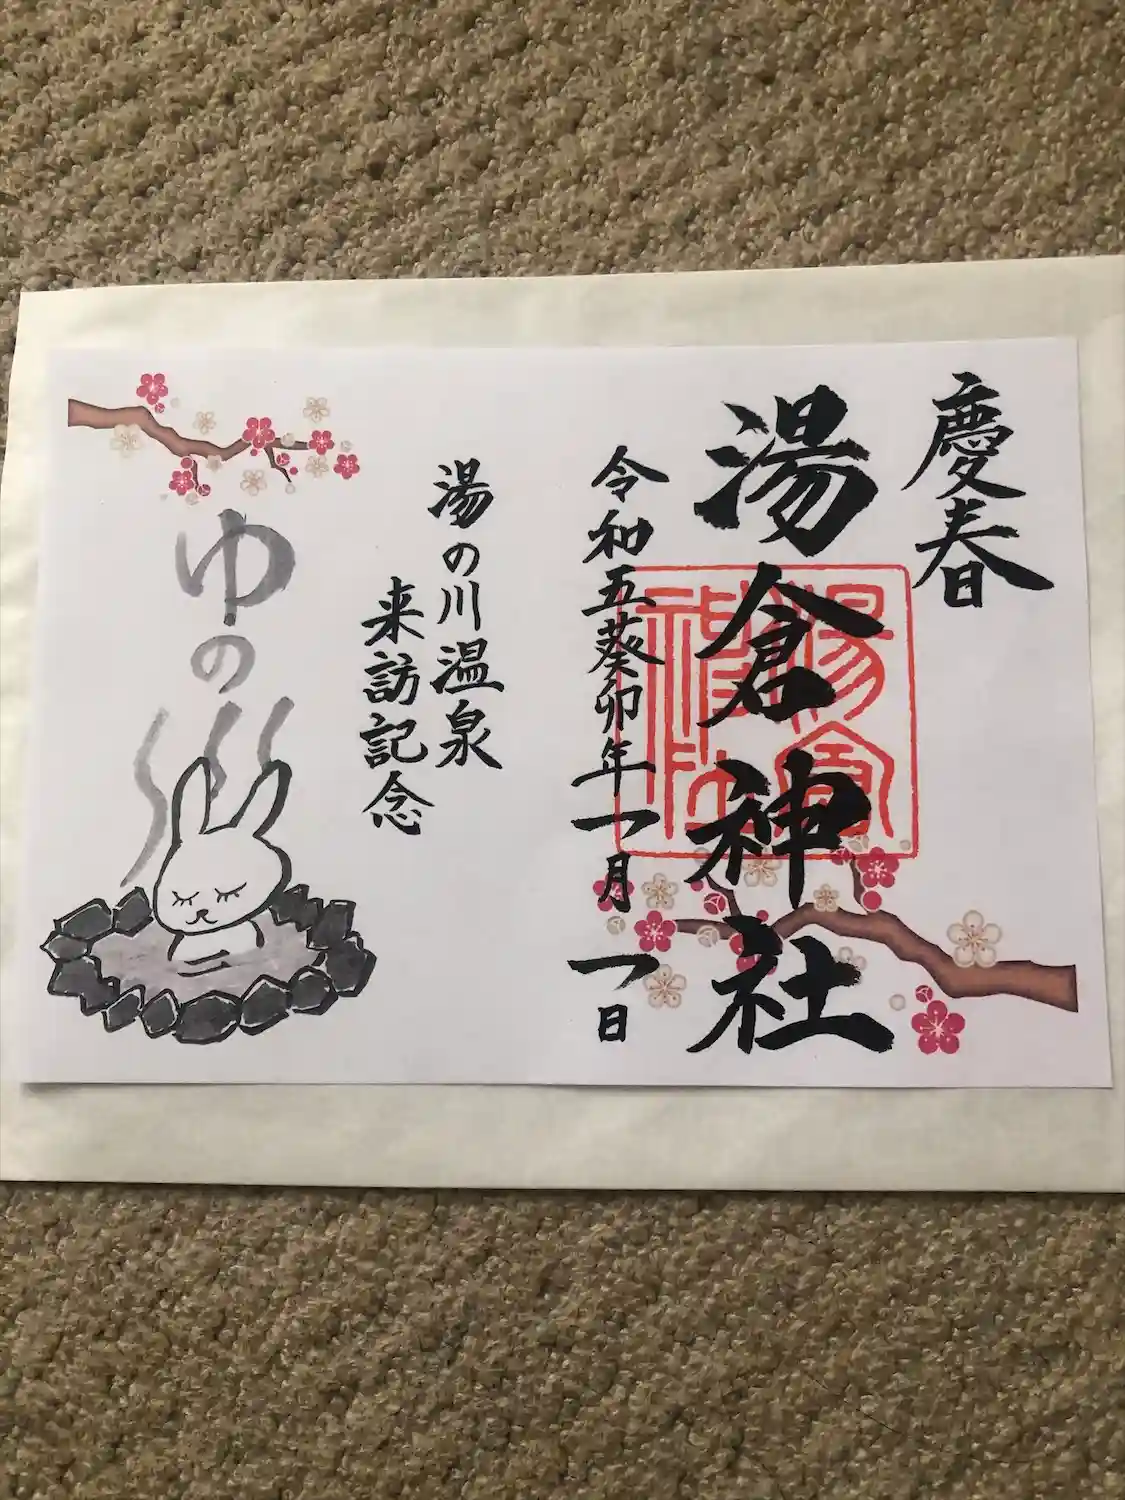 慶春
湯倉神社
湯倉神社
令和五癸卯年一月一日
湯の川温泉
来訪記念
ゆの川